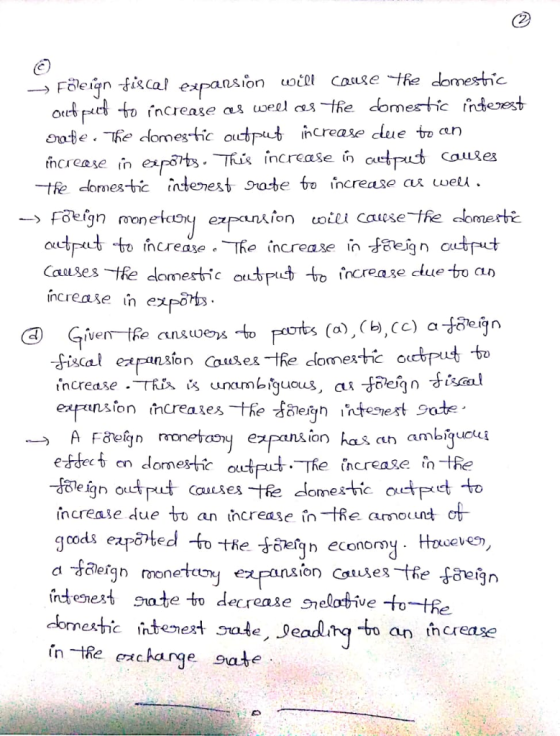 ②
ⓒ
→ Foreign fiscal expansion will cause the domestic
output to increase as well as the domestic interest
rate. The domestic output increase due to an
increase in exports. This increase in output causes
the domestic interest rate to increase as well.
→ Foreign monetary expansion will cause the domestic
output to increase. The increase in foreign output
causes the domestic output to increase due to an
increase in exports.
ⓓ Given the answers to parts (a), (b), (c) a foreign
fiscal expansion causes the domestic output to
increase. This is unambiguous, as foreign fiscal
expansion increases the foreign interest rate.
→ A Foreign monetary expansion has an ambiguous
effect on domestic output. The increase in the
foreign output causes the domestic output to
increase due to an increase in the amount of
goods exported to the foreign economy. However,
a foreign monetary expansion causes the foreign
interest rate to decrease relative to the
domestic interest rate, leading to an increase
in the exchange rate.